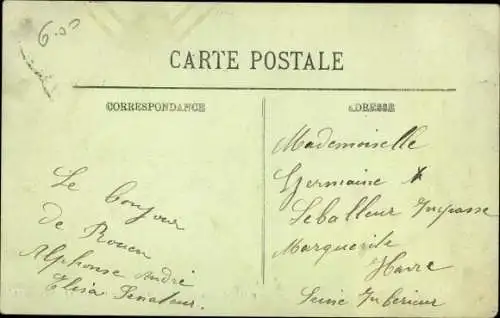 6.00
CARTE POSTALE
CORRESPONDANCE
ADRESSE
Le bonjour
de Rouen
Alphonse André
Elisa Senateur.
Mademoiselle
Germaine
Leballeur Impasse
Marguerite
Havre
Seine Inferieur